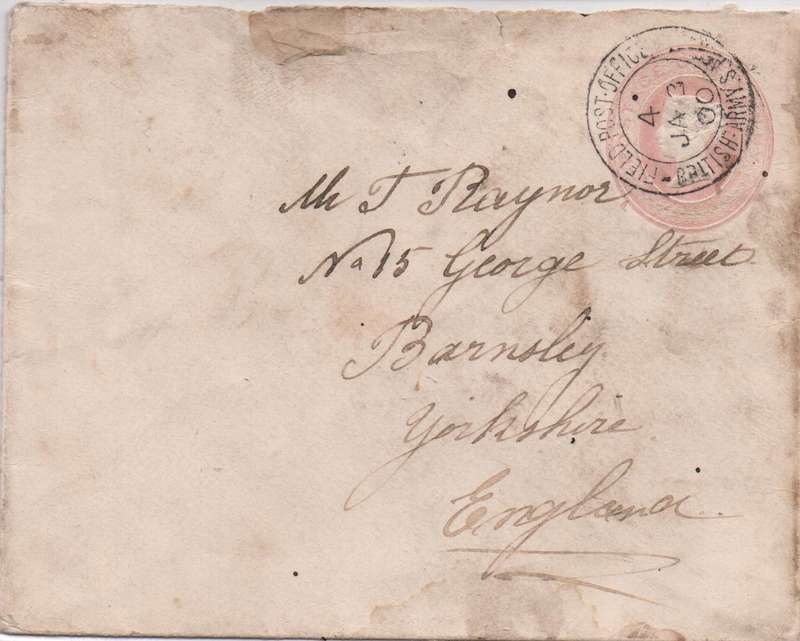 FIELD·POST·OFFICE
BRITISH·ARMY·S.
4
JA 3
00
Mr T Raynor
No 15 George Street
Barnsley
Yorkshire
England